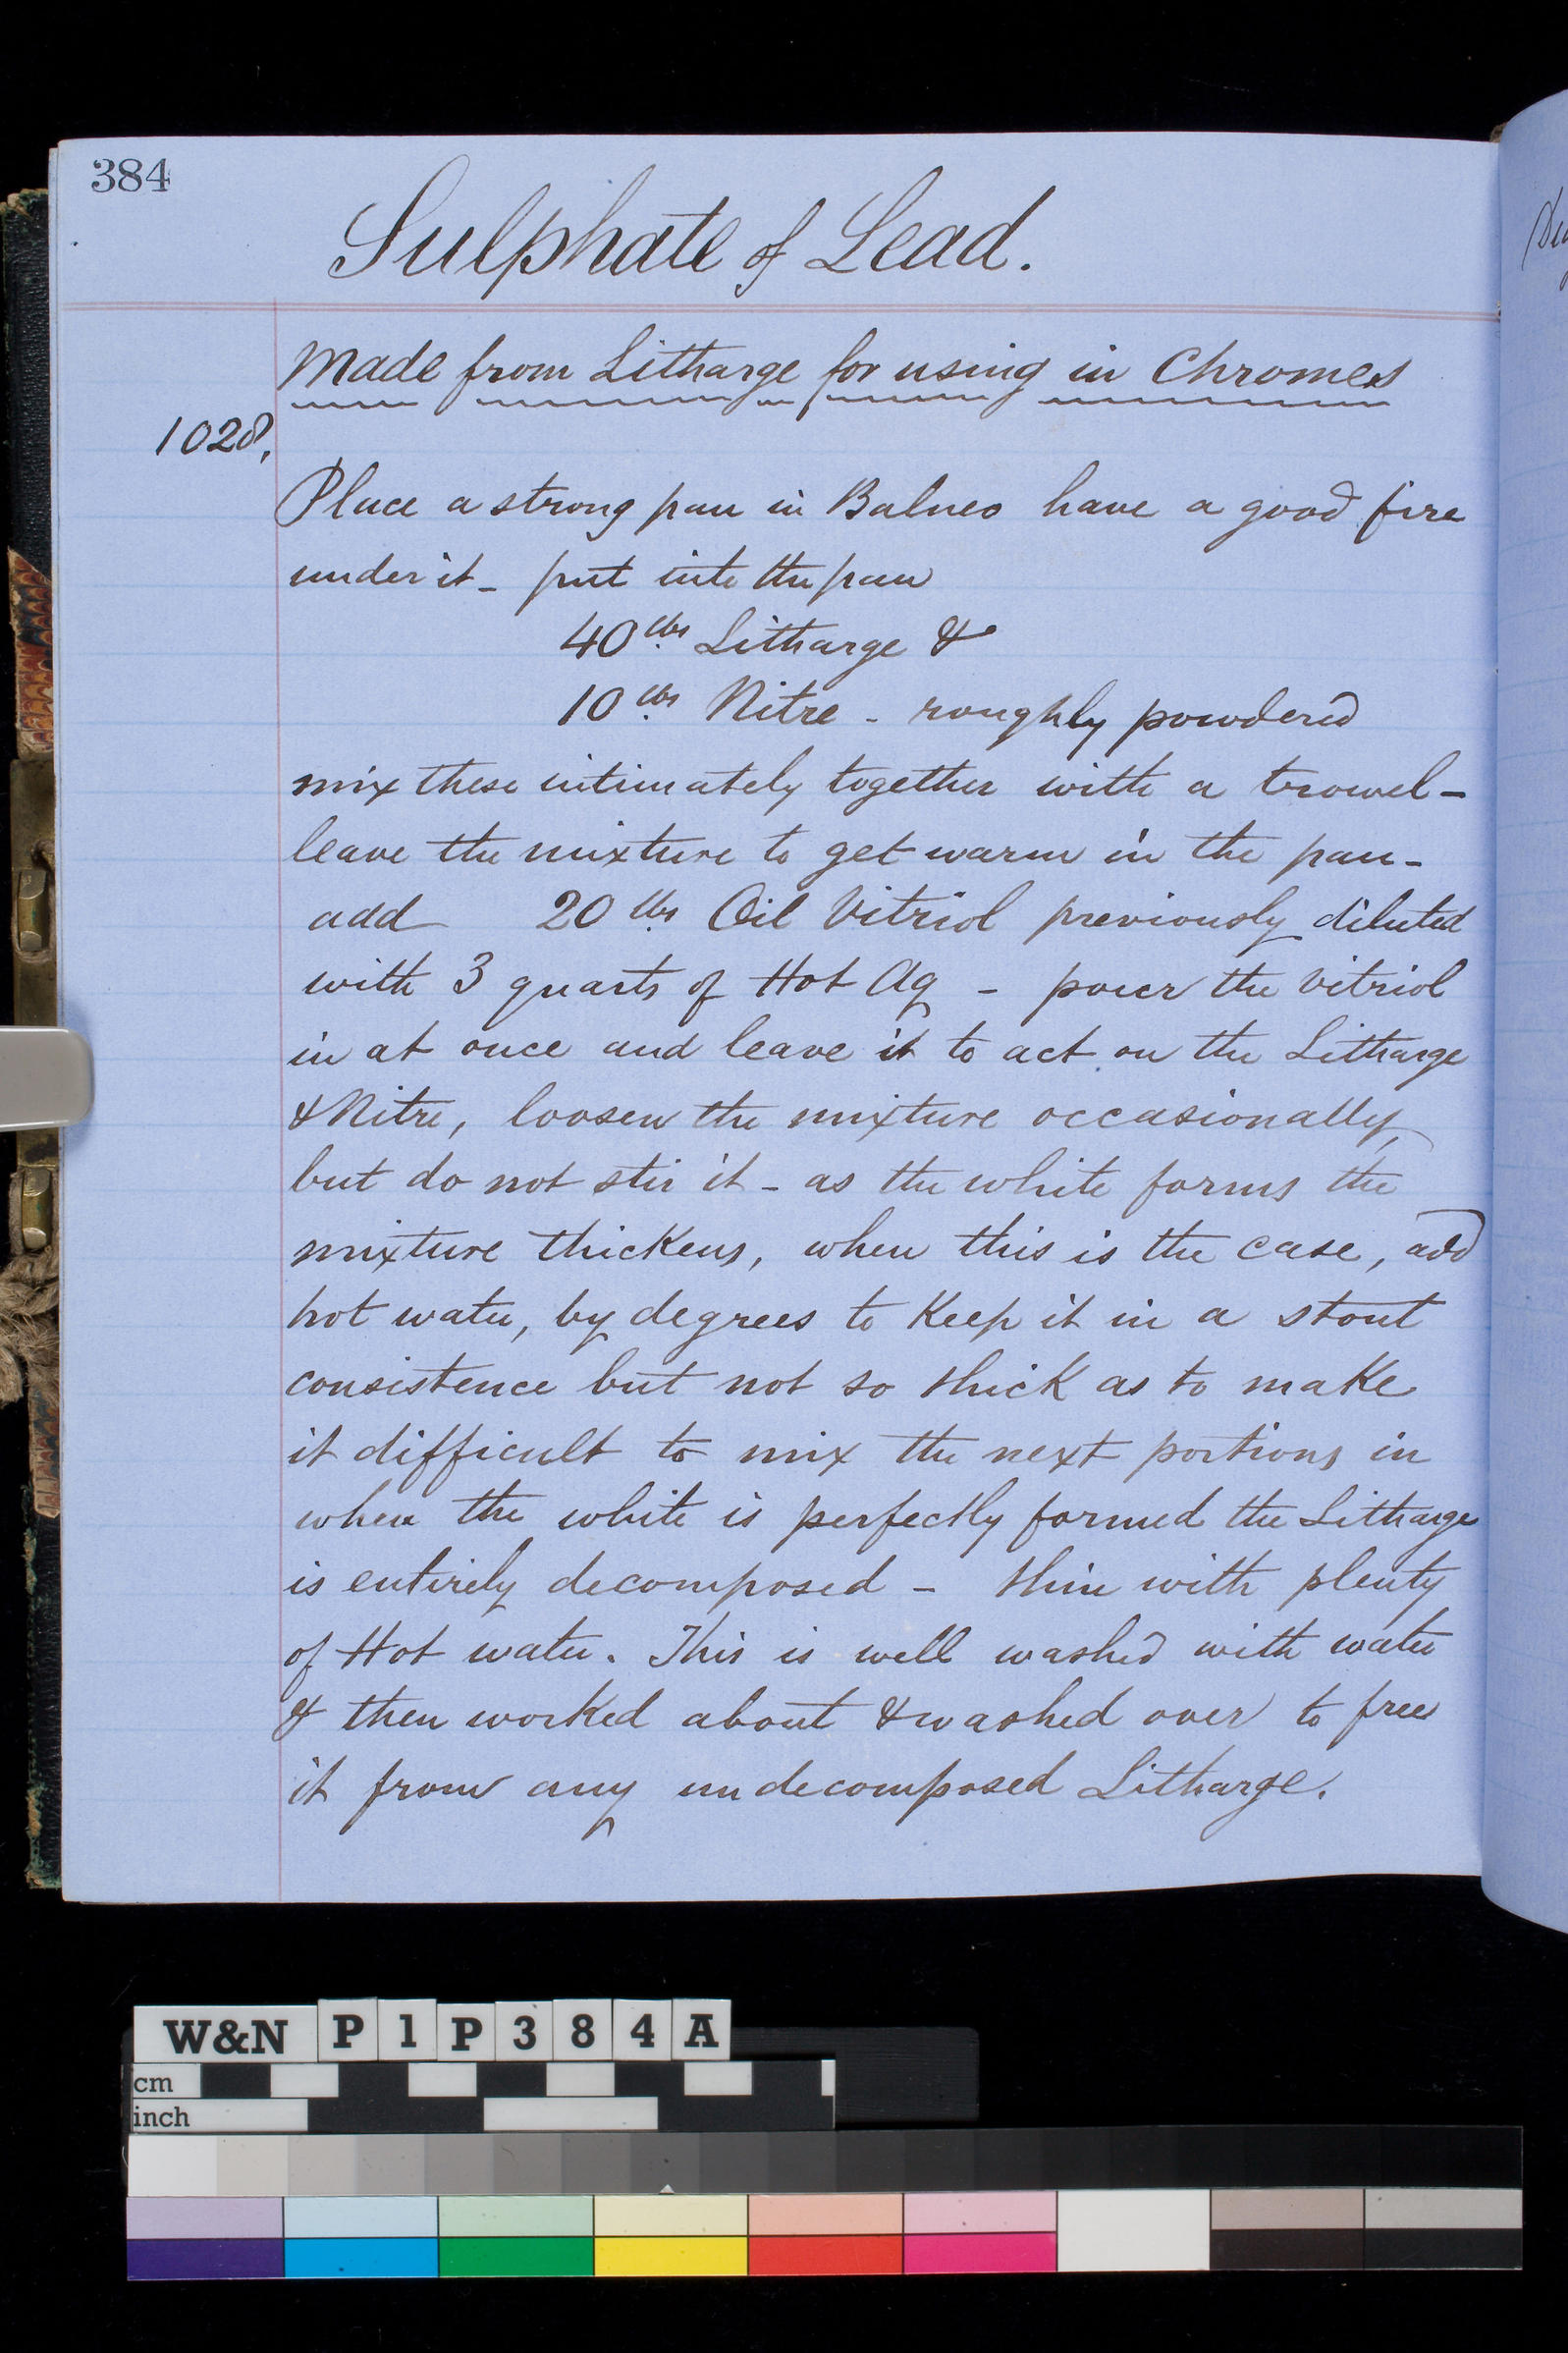 384
Sulphate of Lead.
Made from Litharge for using in Chromes
1028.
Place a strong pan in Balneo have a good fire
under it - put into the pan
40 lbs Litharge &
10 lbs Nitre - roughly powdered
mix these intimately together with a trowel -
leave the mixture to get warm in the pan -
add 20 lbs Oil Vitriol previously diluted
with 3 quarts of Hot Aq - pour the vitriol
in at once and leave it to act on the Litharge
& Nitre, loosen the mixture occasionally,
but do not stir it - as the white forms the
mixture thickens, when this is the case, add
hot water, by degrees to keep it in a stout
consistence but not so thick as to make
it difficult to mix the next portions in
when the white is perfectly formed the Litharge
is entirely decomposed - thin with plenty
of Hot water. This is well washed with water
& then worked about & washed over to free
it from any undecomposed Litharge.
W&N P1P384A
cm
inch